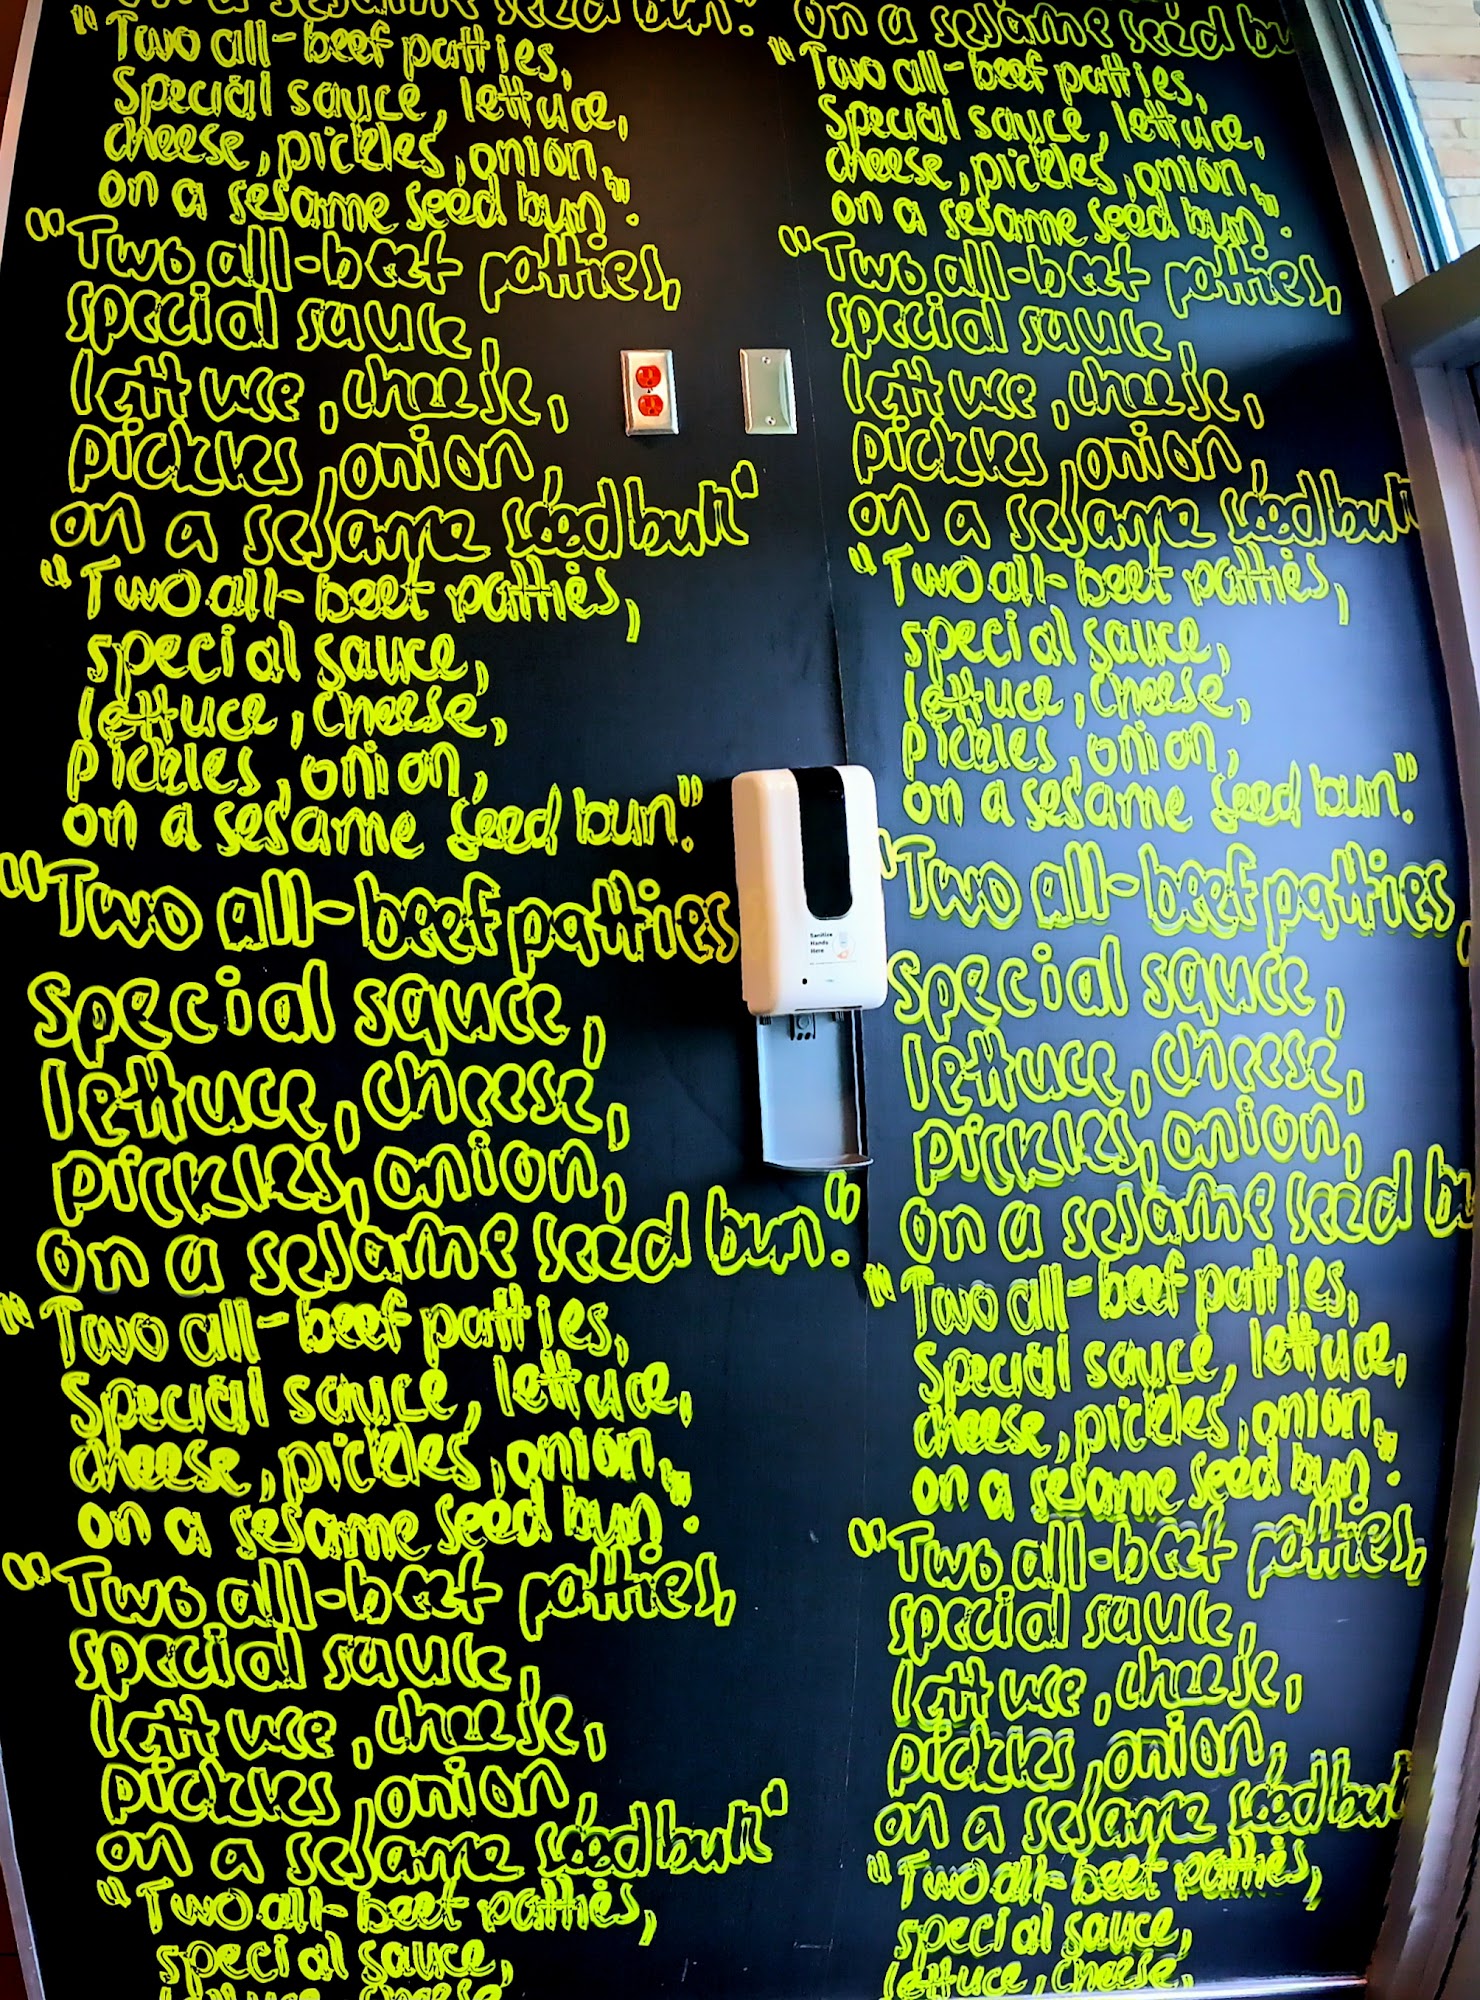 on a sesame seed bun."
"Two all-beef patties,
Special sauce, lettuce,
cheese, pickles, onion,
on a sesame seed bun".
"Two all-beef patties,
special sauce,
lettuce, cheese,
pickles, onion,
on a sesame seed bun"
"Two all-beef patties,
special sauce,
lettuce, cheese,
pickles, onion,
on a sesame seed bun."
"Two all-beef patties
special sauce,
lettuce, cheese,
pickles, onion,
on a sesame seed bun."
"Two all-beef patties,
Special sauce, lettuce,
cheese, pickles, onion,
on a sesame seed bun".
"Two all-beef patties,
special sauce,
lettuce, cheese,
pickles, onion,
on a sesame seed bun"
"Two all-beef patties,
special sauce,
lettuce, cheese,
Sanitize
Hands
Here
on a sesame seed bu
"Two all-beef patties,
Special sauce, lettuce,
cheese, pickles, onion,
on a sesame seed bun".
"Two all-beef patties,
special sauce,
lettuce, cheese,
pickles, onion,
on a sesame seed bun
"Two all-beef patties,
special sauce,
lettuce, cheese,
pickles, onion,
on a sesame seed bun."
"Two all-beef patties,
special sauce,
lettuce, cheese,
pickles, onion,
on a sesame seed bu
"Two all-beef patties,
Special sauce, lettuce,
cheese, pickles, onion,
on a sesame seed bun".
"Two all-beef patties,
special sauce,
lettuce, cheese,
pickles, onion,
on a sesame seed bun
"Two all-beef patties,
special sauce,
lettuce, cheese,